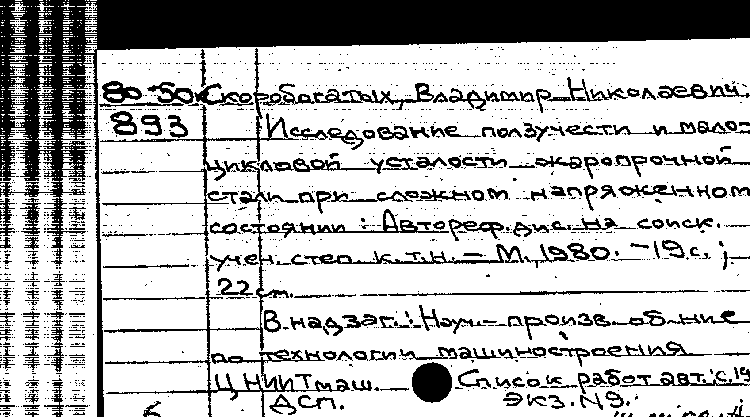 80-50к Скоробогатых, Владимир Николаевич.
893 Исследование ползучести и мало-
цикловой усталости жаропрочной
стали при сложном напряженном
состоянии : Автореф. дис. на соиск.
учен. степ. к.т.н. - М., 1980. - 19 с. ;
22 см.
В надзаг.: Науч.-произв. об-ние
по технологии машиностроения
ЦНИИТмаш. Список работ авт.: с. 19
ДСП. Экз. №9.